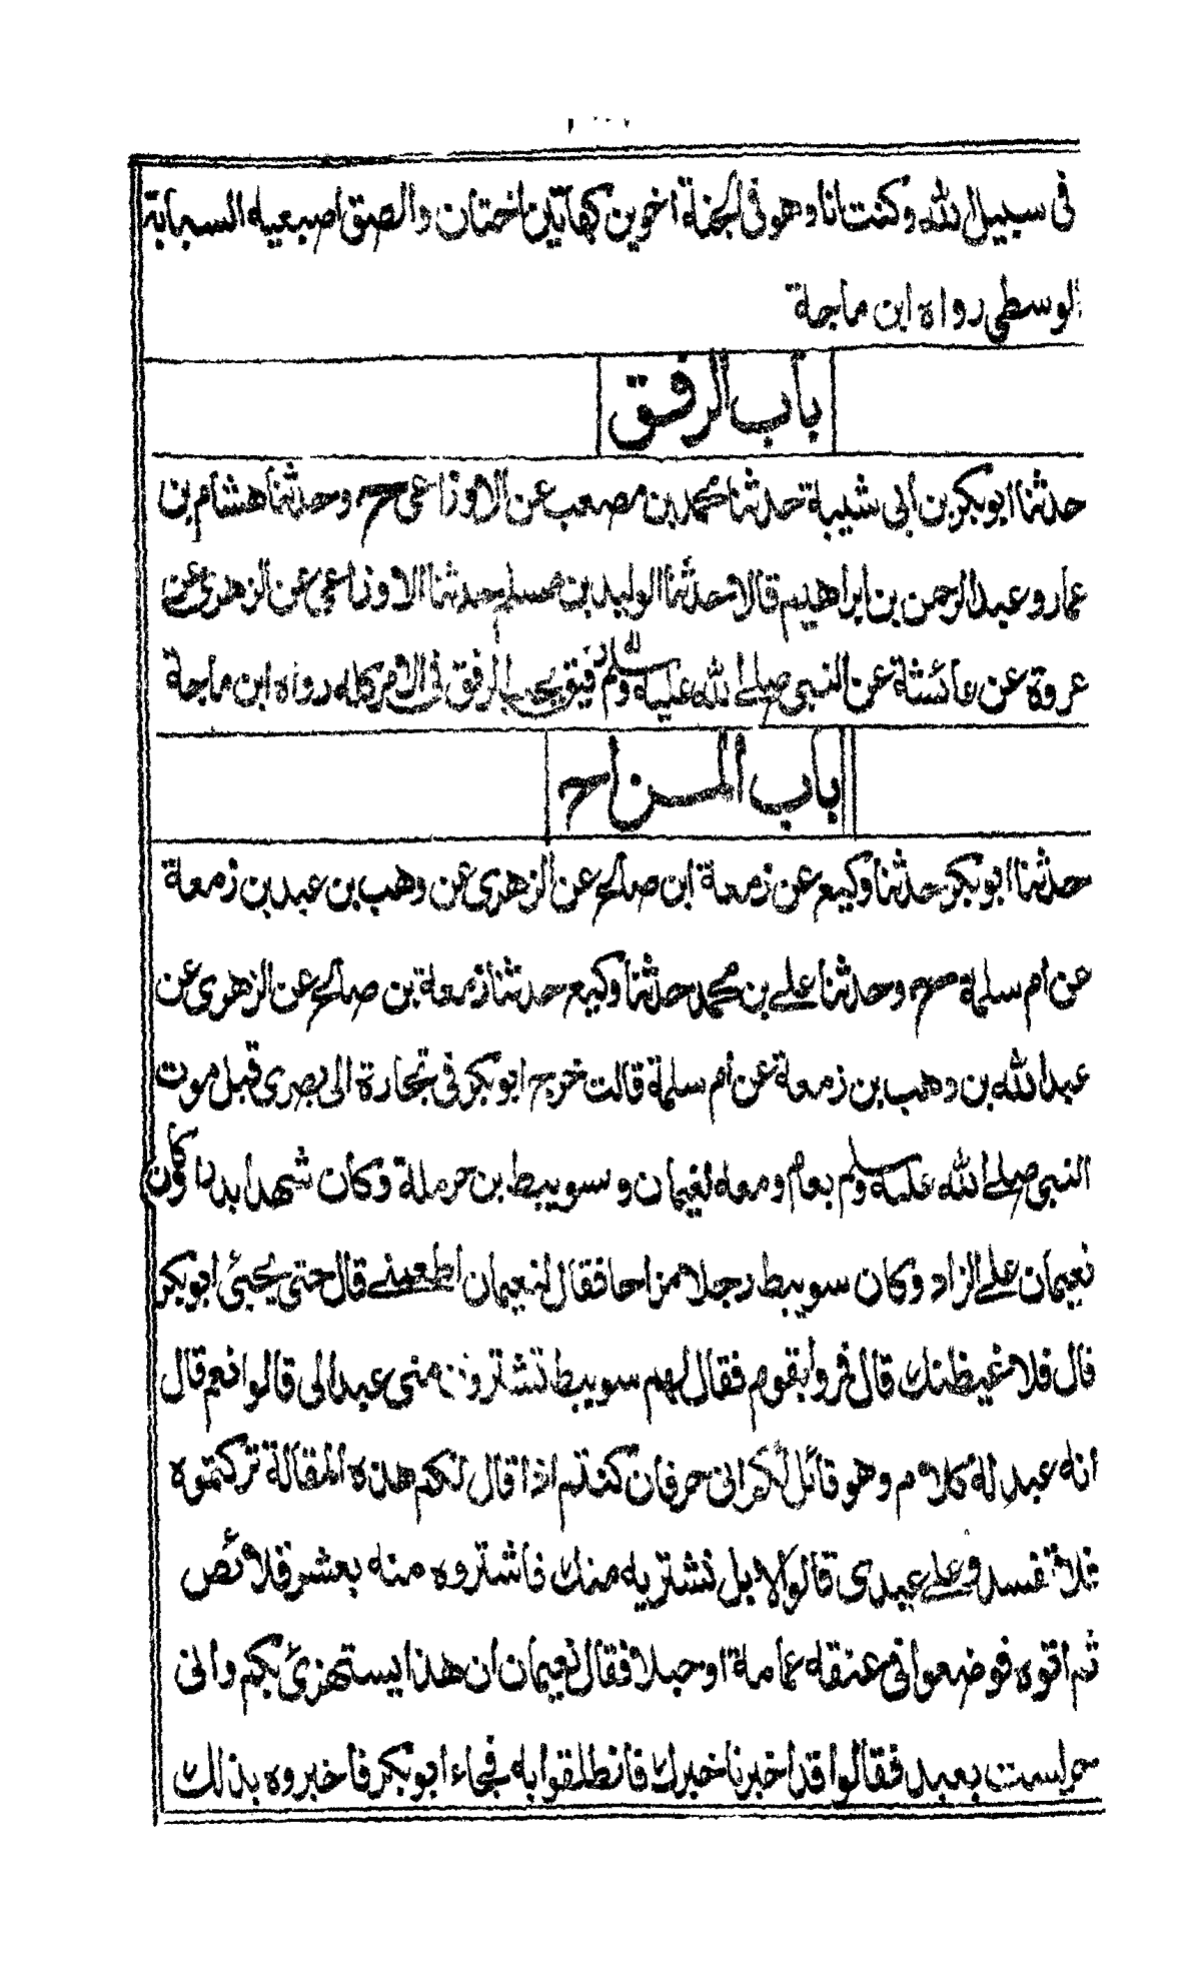 فى سبيل الله وكنت انا وهو فى الجنة اخوين كهاتين اختان والصق اصبعيه السبابة
الوسطى رواه ابن ماجة
باب الرفق
حدثنا ابوبكر بن ابى شيبة حدثنا محمد بن مصعب عن الاوزاعى ح وحدثنا هشام بن
عمار وعبد الرحمن بن ابراهيم قالا حدثنا الوليد بن مسلم حدثنا الاوزاعى عن الزهرى عن
عروة عن عائشة عن النبى صلى الله عليه وسلم رفيق يحب الرفق فى الامر كله رواه ابن ماجة
باب المزاح
حدثنا ابوبكر حدثنا وكيع عن زمعة ابن صالح عن الزهرى عن وهب بن عبد بن زمعة
عن ام سلمة ح وحدثنا على بن محمد حدثنا وكيع حدثنا زمعة بن صالح عن الزهرى عن
عبد الله بن وهب بن زمعة عن ام سلمة قالت خرج ابوبكر فى تجارة الى بصرى قبل موت
النبى صلى الله عليه وسلم بعام ومعه نعيمان وسويبط بن حرملة وكان شهدا بدرا وكان
نعيمان على الزاد وكان سويبط رجلا مزاحا فقال لنعيمان اطعمنى قال حتى يجيئ ابوبكر
قال فلاغيظنك قال فمروا بقوم فقال لهم سويبط تشترون منى عبدا لى قالوا نعم قال
انه عبد له كلام وهو قائل لكم انى حر فان كنتم اذا قال لكم هذه المقالة تركتموه
فلا تفسدو على عبدى قالوا لا بل نشتريه منك فاشتروه منه بعشر قلائص
ثم اتوه فوضعوا فى عنقه عمامة او حبلا فقال نعيمان ان هذا يستهزئ بكم وانى
حر لست بعبد فقالوا قد اخبرنا خبرك فانطلقوا به فجاء ابوبكر فاخبروه بذلك